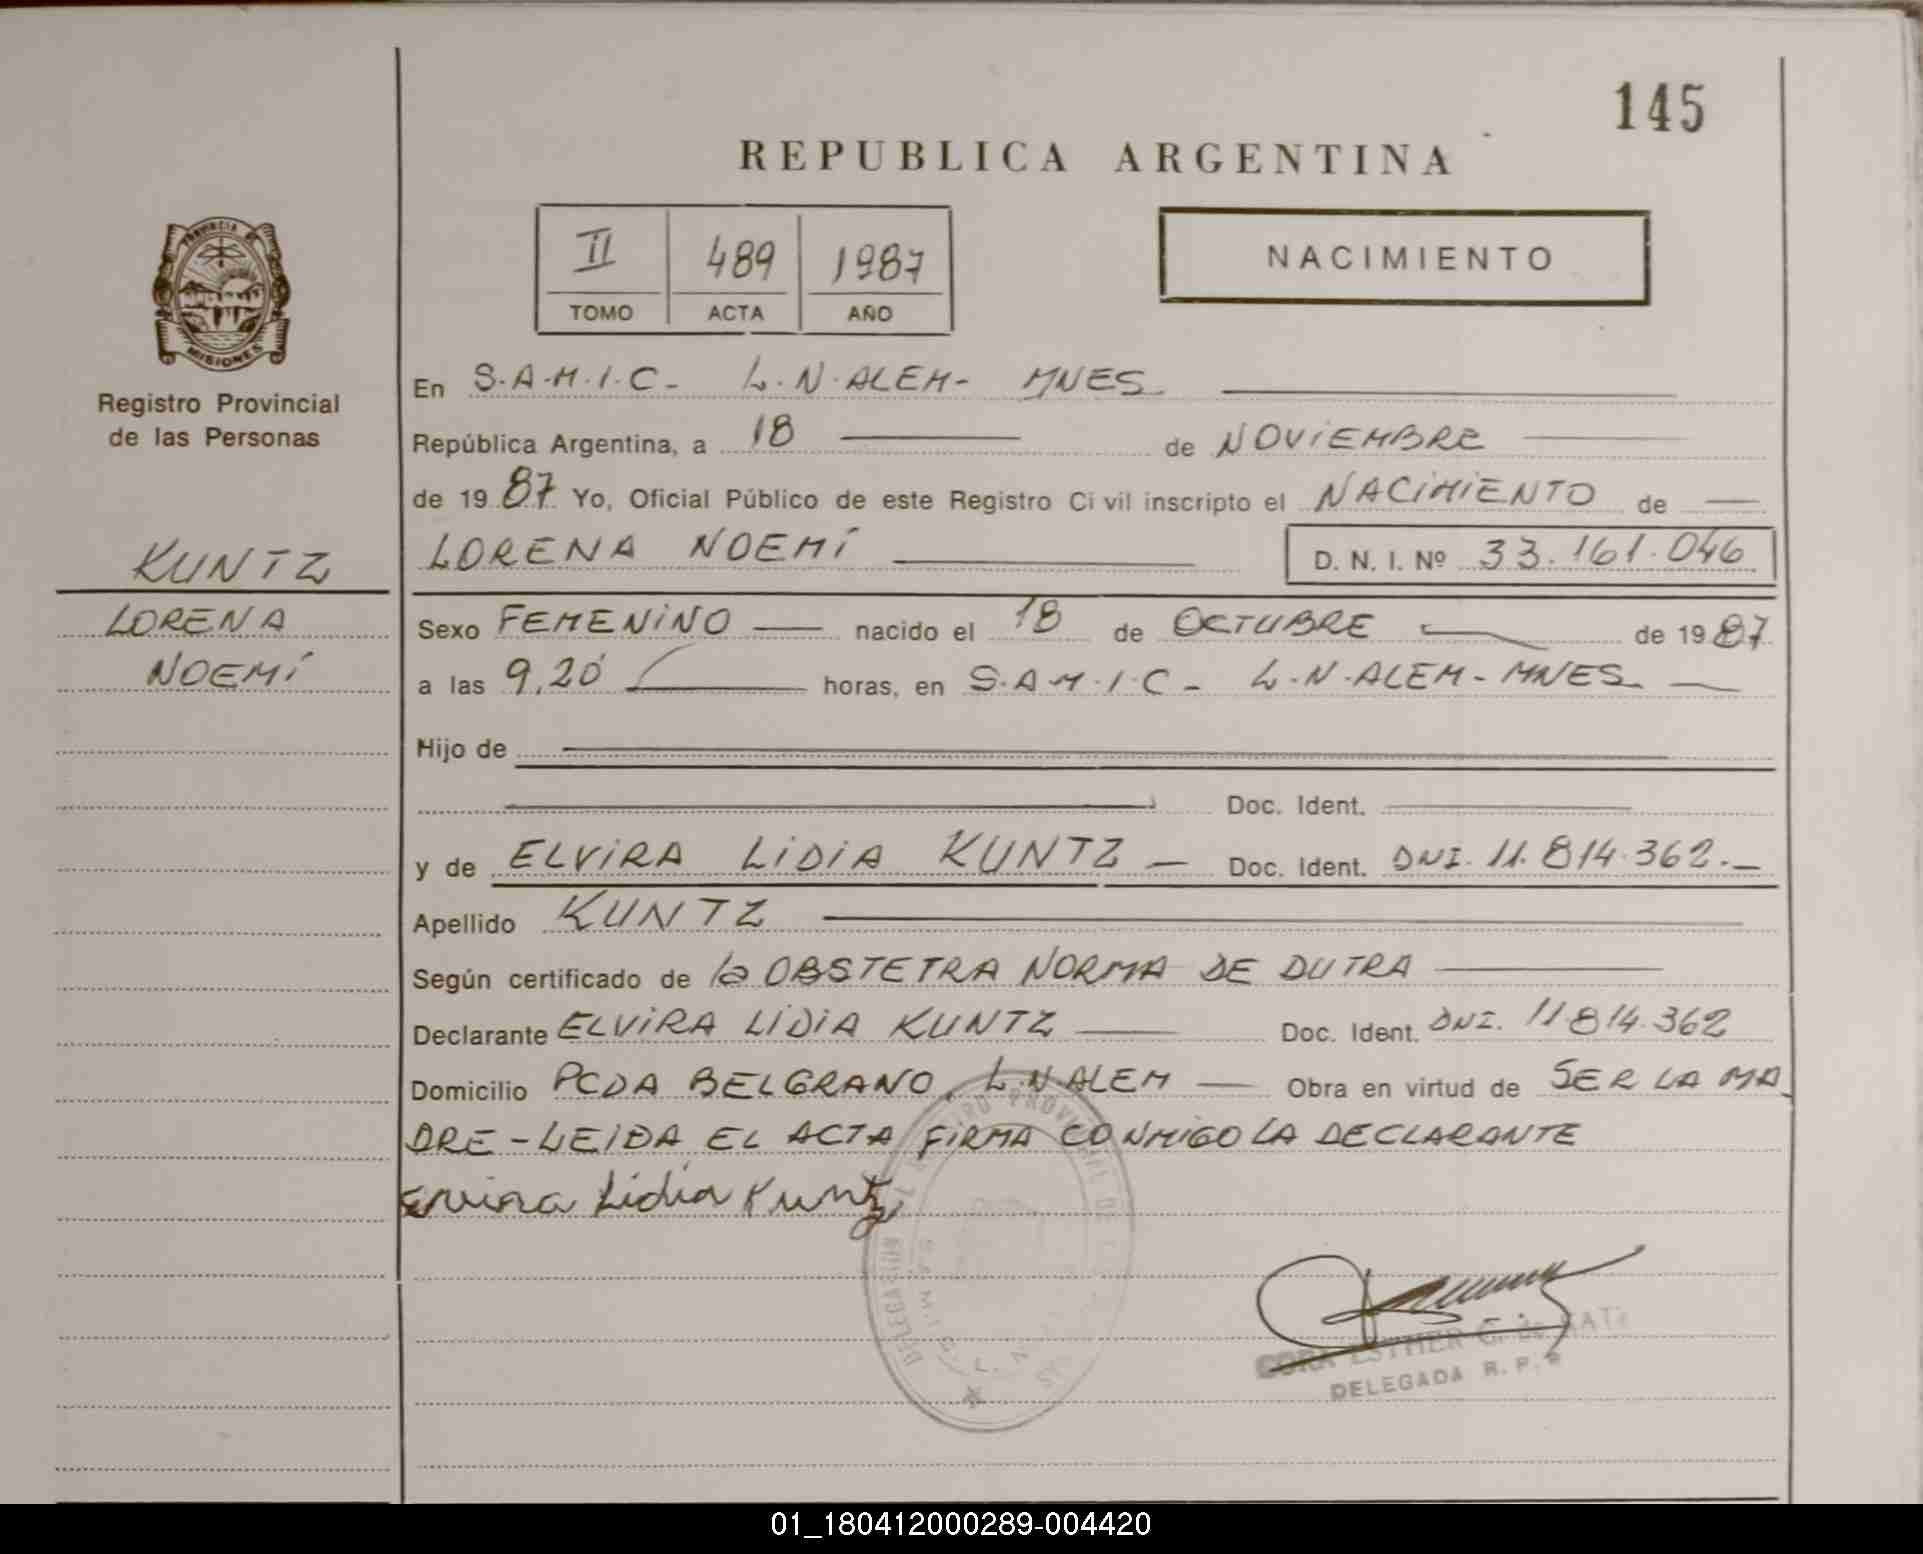 145
REPUBLICA ARGENTINA
II 489 1987
TOMO ACTA AÑO
NACIMIENTO
PROVINCIA DE
MISIONES
Registro Provincial
de las Personas
KUNTZ
LORENA
NOEMÍ
En S.A.M.I.C- L.N.ALEM- MNES.
República Argentina, a 18 de NOVIEMBRE
de 1987 Yo, Oficial Público de este Registro Civil inscripto el NACIMIENTO de
LORENA NOEMÍ D. N. I. Nº 33.161.046
Sexo FEMENINO nacido el 18 de OCTUBRE de 1987
a las 9,20 horas, en S.A.M.I.C- L.N.ALEM-MNES.
Hijo de
Doc. Ident.
y de ELVIRA LIDIA KUNTZ Doc. Ident. DNI. 11.814.362.-
Apellido KUNTZ
Según certificado de la OBSTETRA NORMA DE DUTRA
Declarante ELVIRA LIDIA KUNTZ Doc. Ident. DNI. 11.814.362
Domicilio PCDA BELGRANO, L.N.ALEM Obra en virtud de SER LA MA
DRE-LEIDA EL ACTA FIRMA CONMIGO LA DECLARANTE
Elvira Lidia Kuntz
CORA ESTHER G. de
DELEGADA R. P. P
01_180412000289-004420